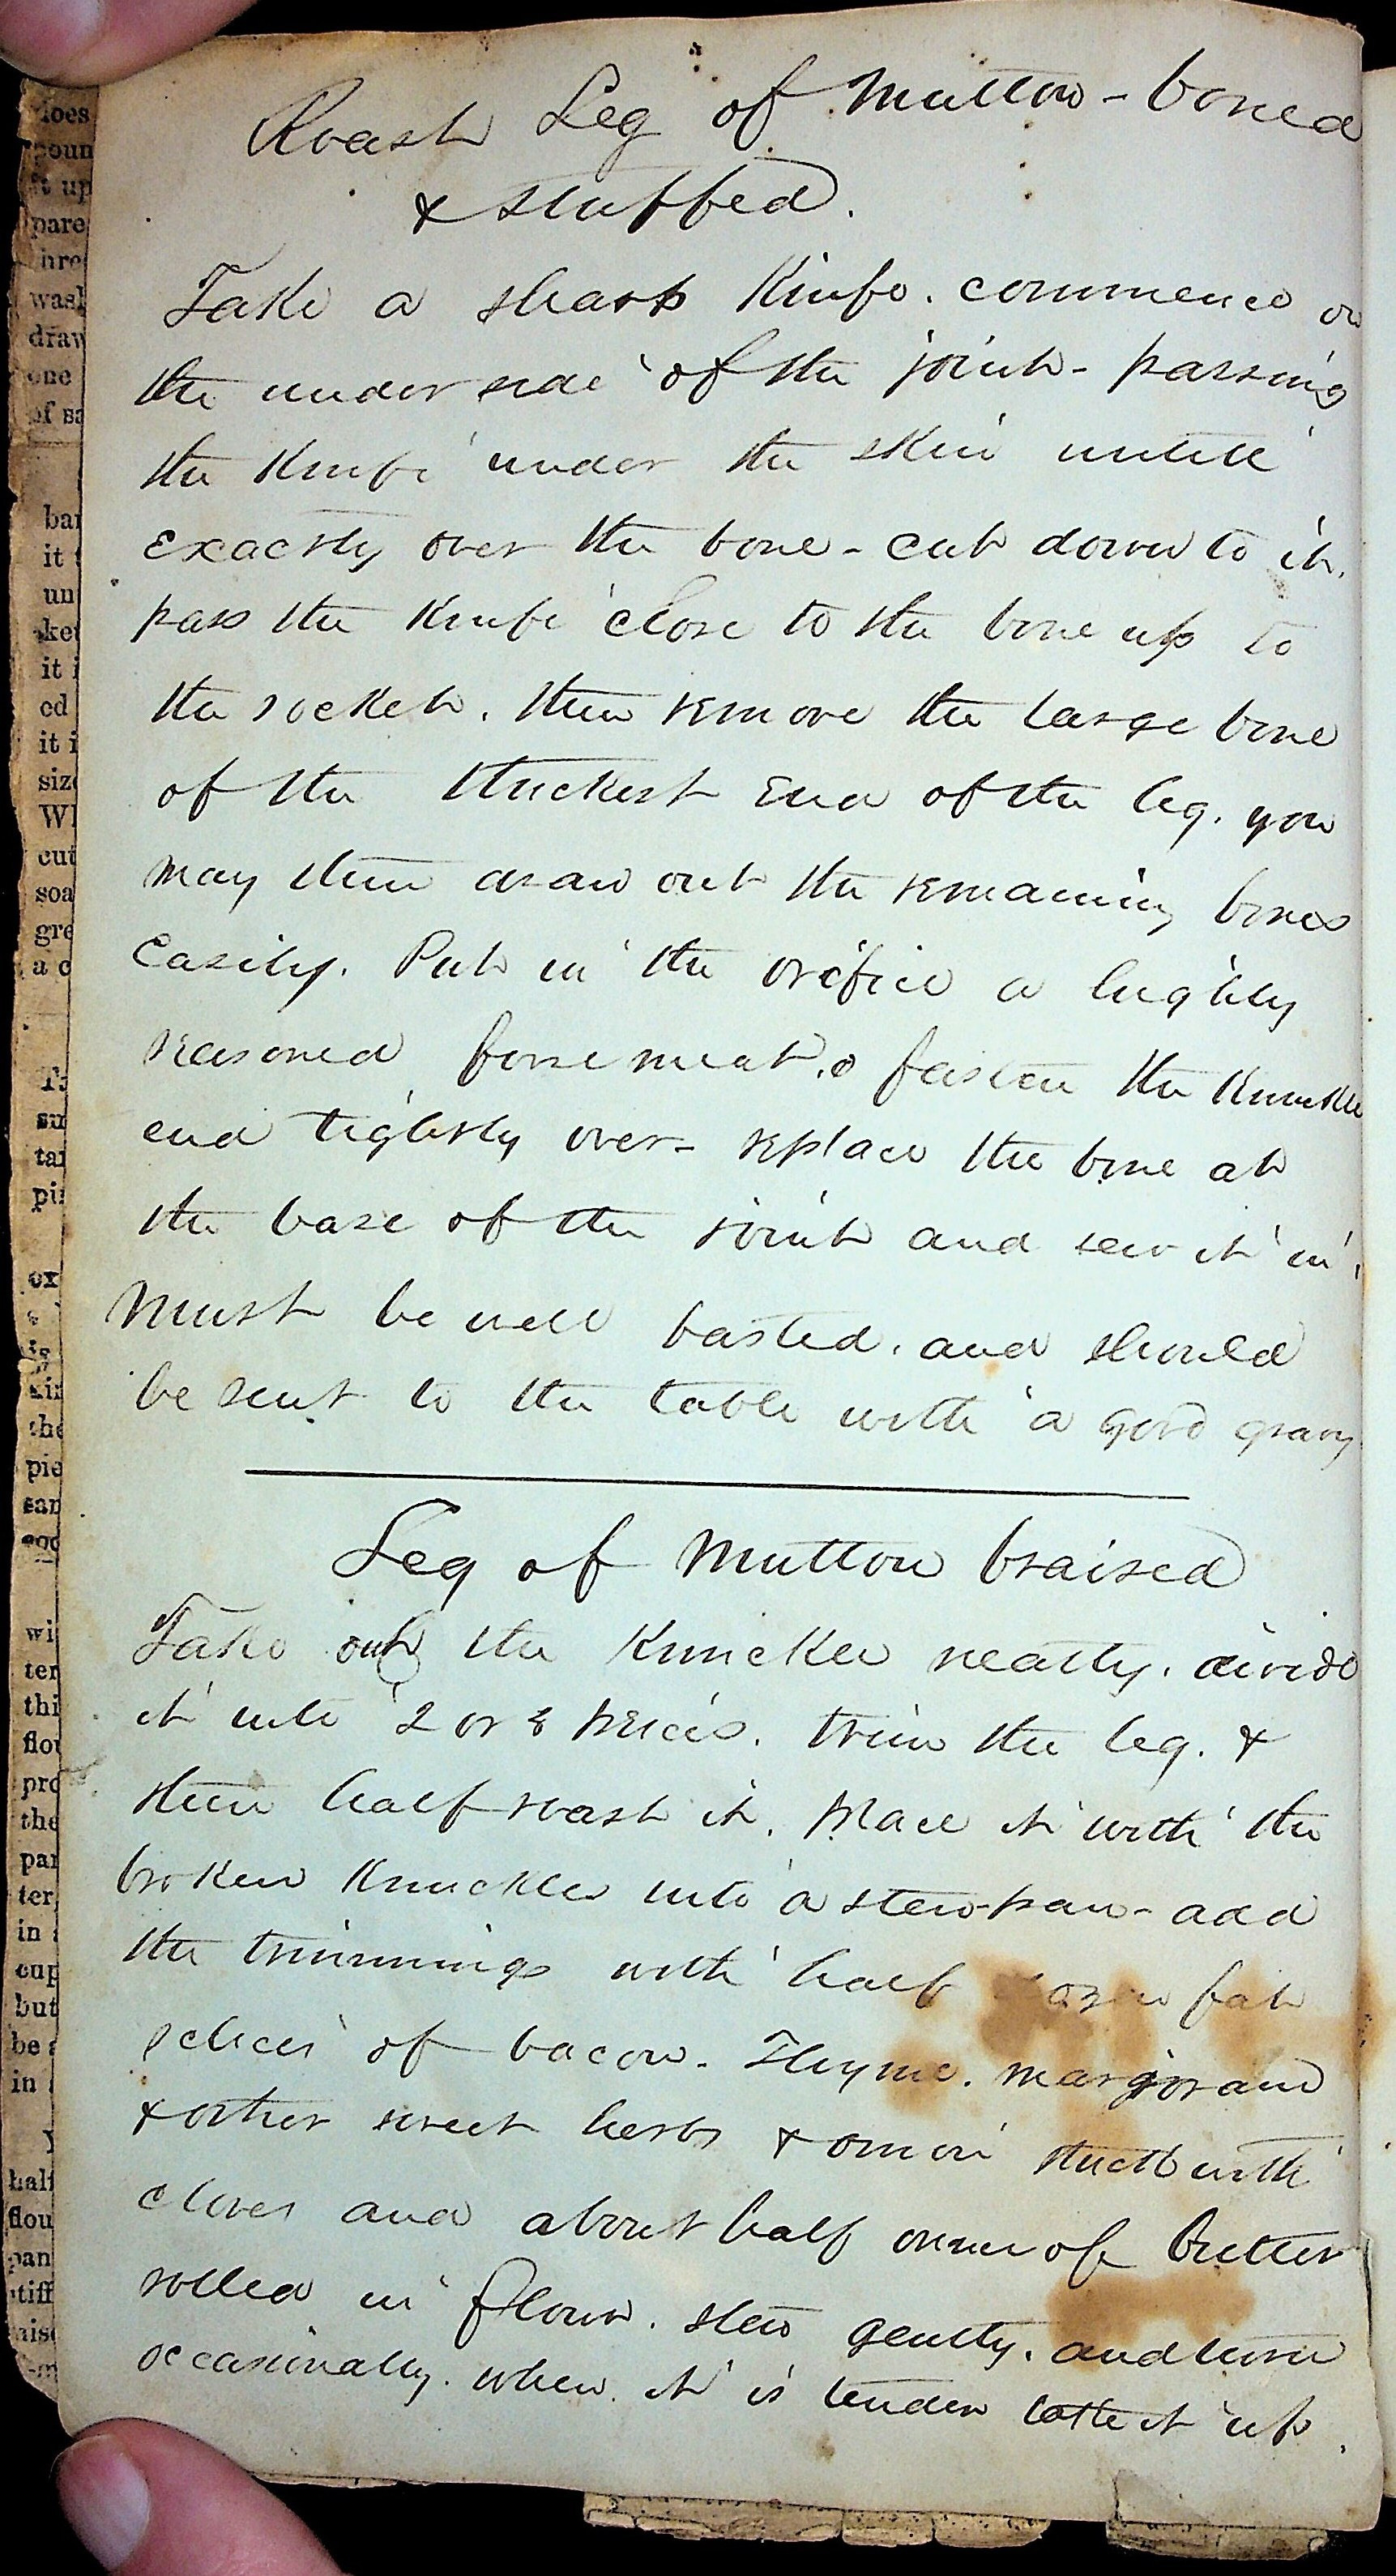 Roast Leg of Mutton - boned
& stuffed.
Take a sharp Knife. commence on
the under side of the joint - passing
the Knife under the skin untill
exactly over the bone - cut down to it.
pass the Knife close to the bone up to
the socket. then remove the large bone
of the thickest End of the leg. you
may then draw out the remaining bones
Easily. Put in the orifice a highly
seasoned forse meat. & fasten the Knuckle
end tightly over - replace the bone at
the base of the joint and sew it in.
Must be well basted. and should
be sent to the table with a good gravy
Leg of Mutton braised
Take out the Knuckle neatly. divide
it into 2 or 3 pieces. trim the leg. &
then half roast it. place it with the
broken Knuckles into a stew-pan - add
the trimmings with half dozen fat
slices of bacon - Thyme. marjoram
& other sweet herbs & onion stuck with
cloves and about half ounce of Butter
rolled in flour. stew gently. and turn
occasionally. when it is tender take it up.
does
poun
ft up
pare
wash
draw
one
of sa
bar
it t
un
ket
it i
ed
it i
size
Wh
cut
soa
gre
a c
su
tar
pi
ox
is
the
pie
san
wi
ter
thi
flou
pro
the
par
ter,
in
cup
but
be
in
half
flou
pan
stiff